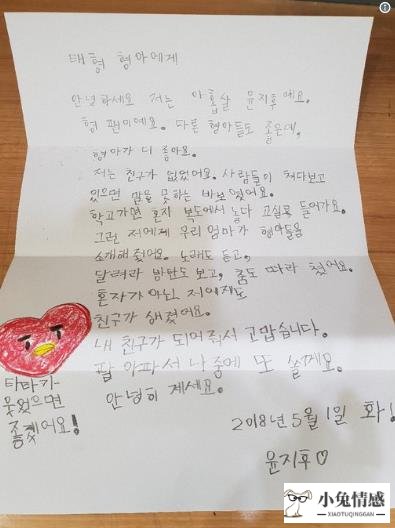 태형 형아에게
안녕하세요 저는 아홉살 윤지후예요.
형 팬이에요. 다른 형아들도 좋은데,
형아가 더 좋아요.
저는 친구가 없었어요. 사람들이 쳐다보고
있으면 말을 못하는 바보였어요.
학교가면 혼자 복도에서 놀다 교실로 들어가요.
그런 저에게 우리엄마가 형아들을
소개해줬어요. 노래도 듣고,
달려라 방탄도 보고, 춤도 따라 췄어요.
혼자가 아닌 저에게도
친구가 생겼어요.
내 친구가 되어줘서 고맙습니다.
팔 아파서 나중에 또 쓸께요.
안녕히 계세요.
타타가
웃었으면
좋겠어요!
2018년 5월 1일 화!
윤지후♡
小兔情感
XIAOTUQINGGAN